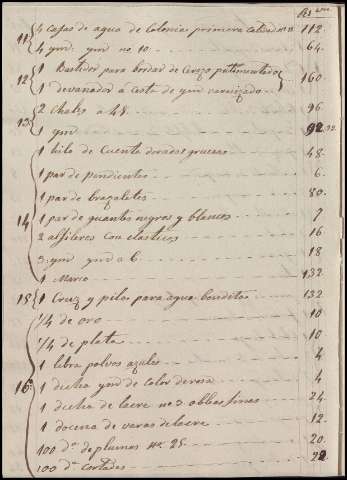 Rs vn.
11 { 4 Cajas de agua de Colonia primera calidad nº 13 112.
4 ydm. ydm no 10. 64.
12 { 1 Bastidor para bordar de Cerezo patimentado
1 devanador a cesto de ydm varnizado } 160
13 { 2 Chales a 48. 96
1 ydm 92.
14 { 1 hilo de Cuentas gruesas 48.
1 par de pendientes 6.
1 par de brazaletes 80.
1 par de guantes negros y blancos 7
2 alfileres con elasticos 16
3 ydm ydm a 6. 18
1 Marco 132.
15 { 1 Cruz y pila para agua bendita 132
16 { 1/4 de oro 10
1/4 de plata 10
1 libra polvos azules 4
1 decha ydm de color de rosa 4
1 decha de lacre no 2 obleas finas 24
1 docena de varas de lacre 12.
100 ds. de plumas no. 25. 20.
100 ds. Cortadas 22